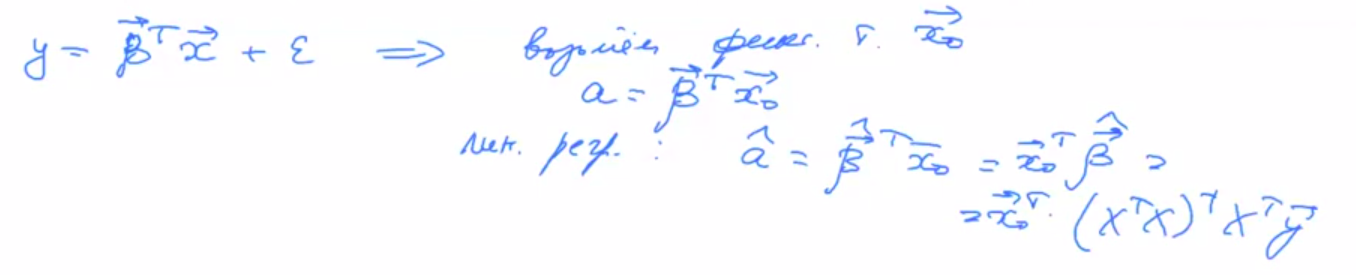 y = β⃗ᵀx⃗ + ε ⟹ возьмём фикс. т. x⃗₀
a = β⃗ᵀx⃗₀
лин. регр. : â = β⃗̂ᵀx⃗₀ = x⃗₀ᵀβ⃗̂ =
= x⃗₀ᵀ · (XᵀX)⁻¹Xᵀy⃗